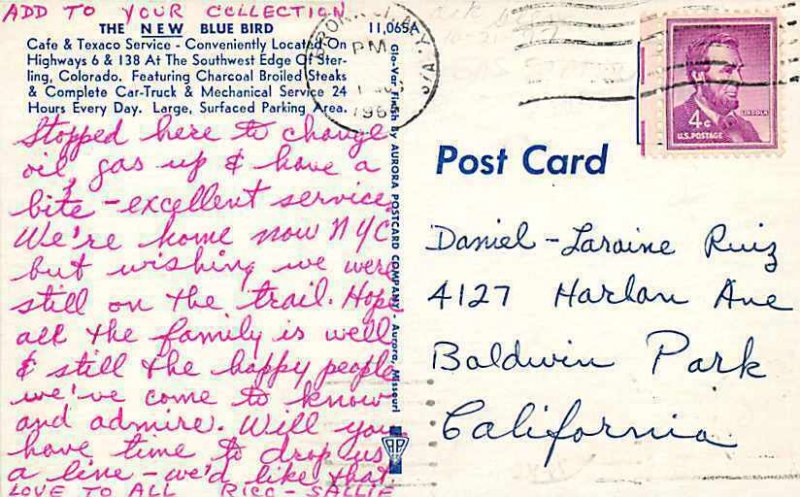 ADD TO YOUR COLLECTION
THE NEW BLUE BIRD
11,065A
Cafe & Texaco Service - Conveniently Located On
Highways 6 & 138 At The Southwest Edge Of Ster-
ling, Colorado. Featuring Charcoal Broiled Steaks
& Complete Car-Truck & Mechanical Service 24
Hours Every Day. Large, Surfaced Parking Area.
Stopped here to change
oil, gas up & have a
bite - excellent service.
We're home now NYC
but wishing we were
still on the trail. Hope
all the family is well
& still the happy people
we've come to know
and admire. Will you
have time to drop us
a line - we'd like that
LOVE TO ALL RICC - SALLIE
Glo-Var Finish By AURORA POSTCARD COMPANY, Aurora, Missouri
N.Y.
PM
196
4¢
LINCOLN
U.S. POSTAGE
Post Card
Daniel - Laraine Ruiz
4127 Harlan Ave
Baldwin Park
California